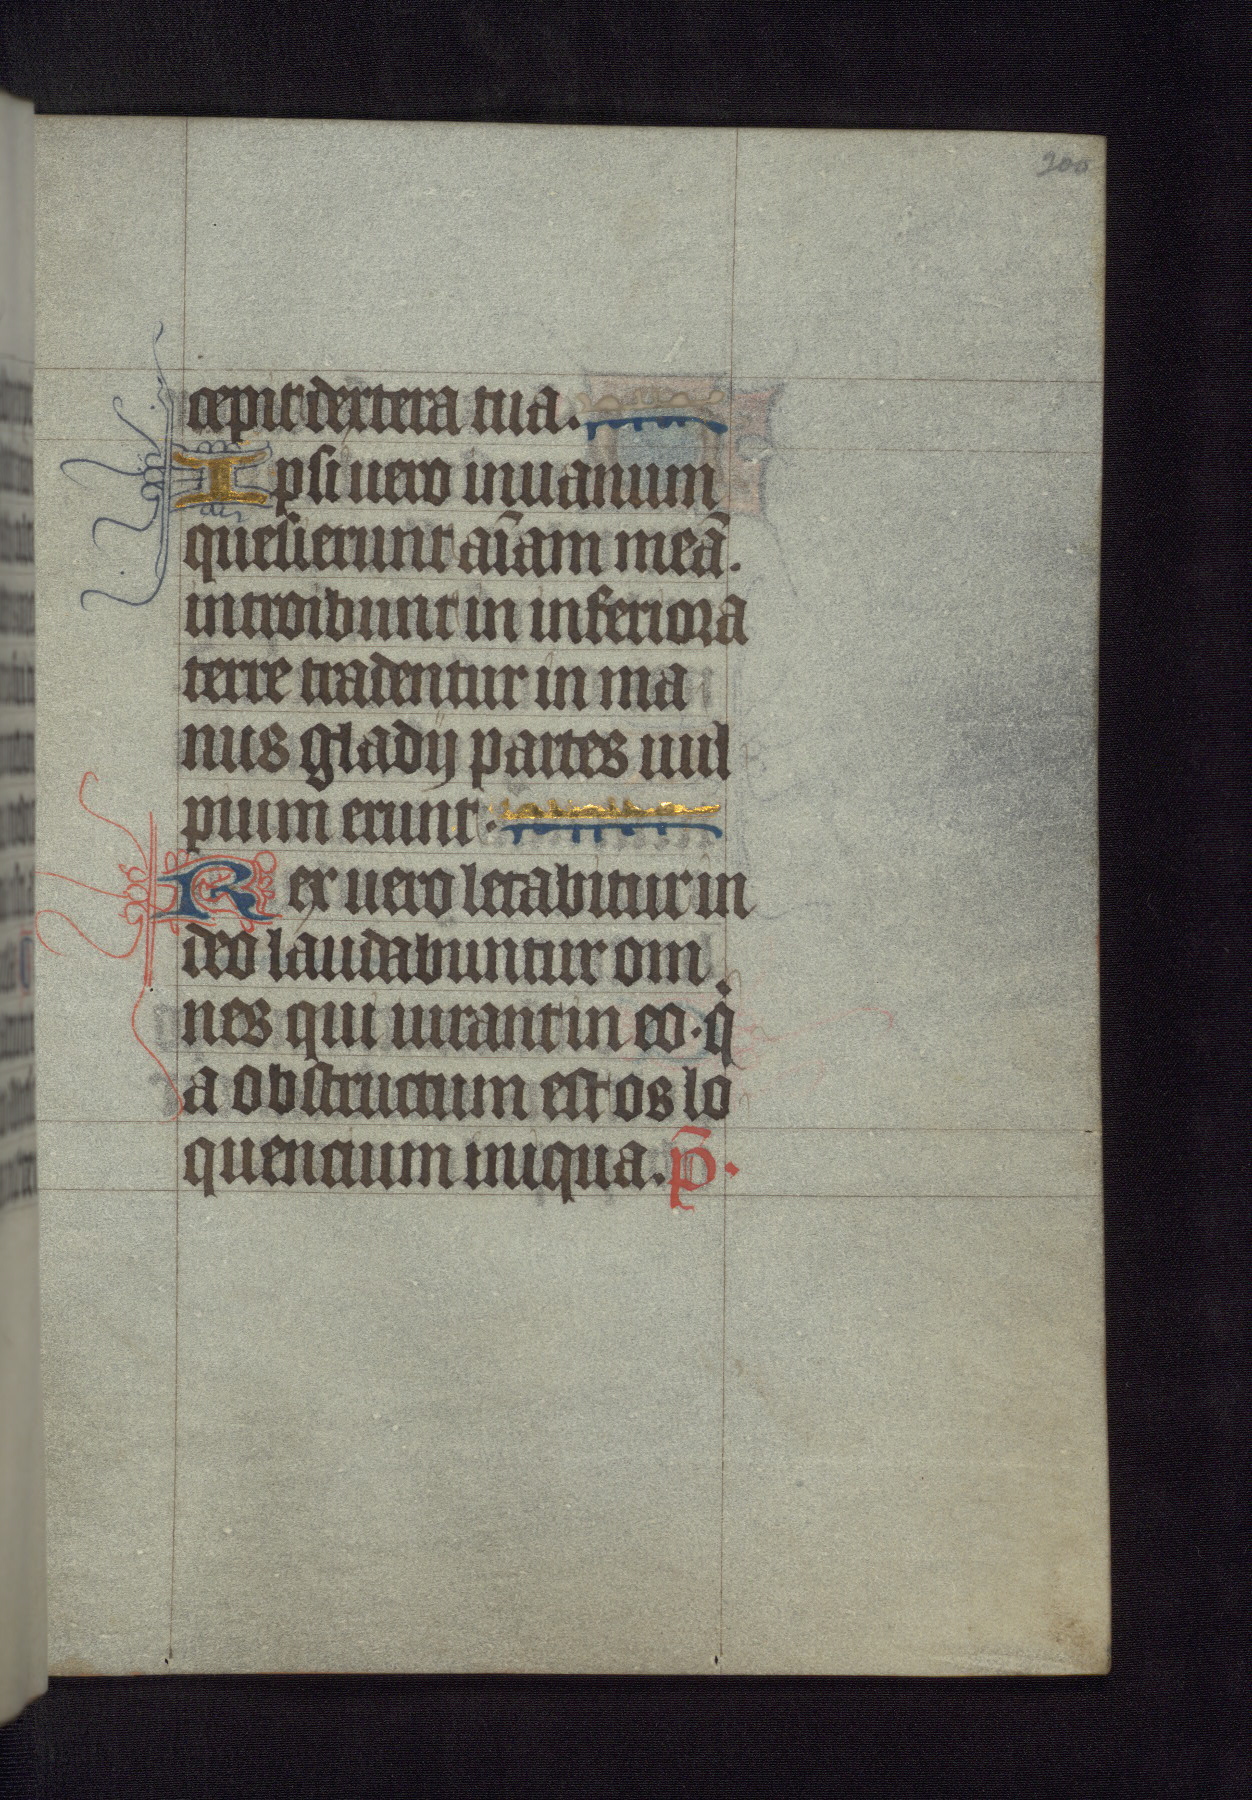 200
cepit dextera tua.
Ipsi uero inuanum
quesierunt aīam meā.
introibunt in inferiora
terre tradentur in ma
nus gladij partes uul
pium erunt.
Rex uero letabitur in
deo laudabuntur om
nes qui iurant in eo. q̄
a obstructum est os lo
quencium iniqua. p̄.